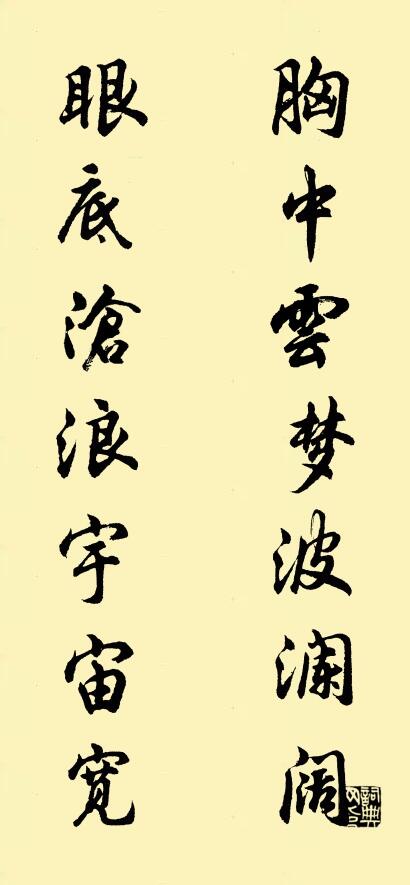 胸中雲梦波澜阔
眼底滄浪宇宙寬